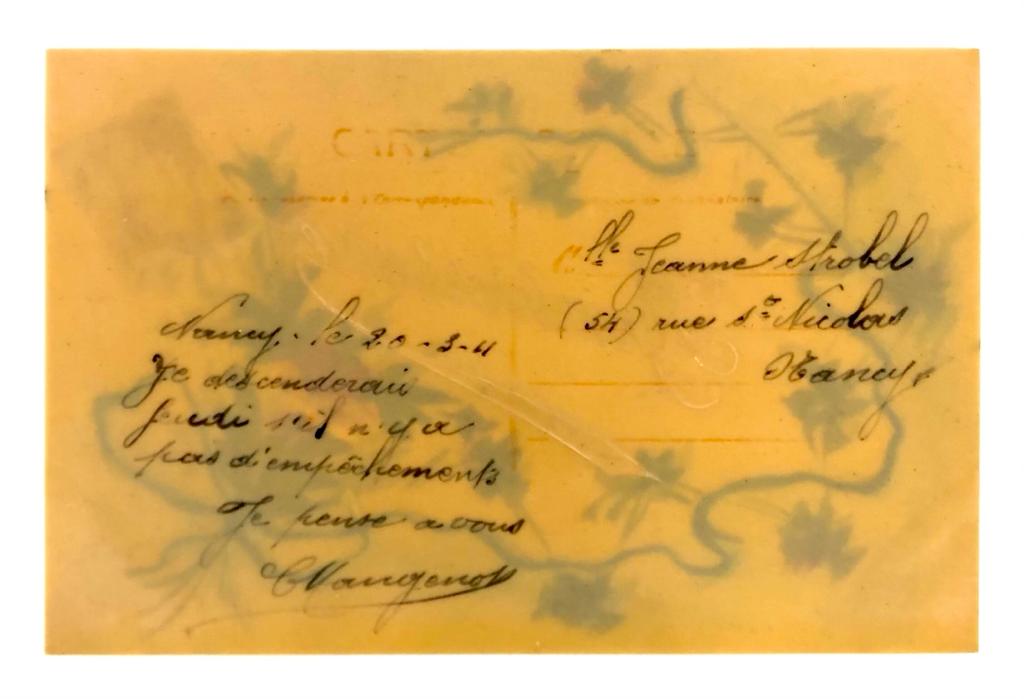 Nancy. le 20-3-11
Je descenderai
jeudi s'il n'y a
pas d'empêchements
Je pense a vous
CMangenot
Mlle Jeanne Strobel
(54) rue St Nicolas
Nancy